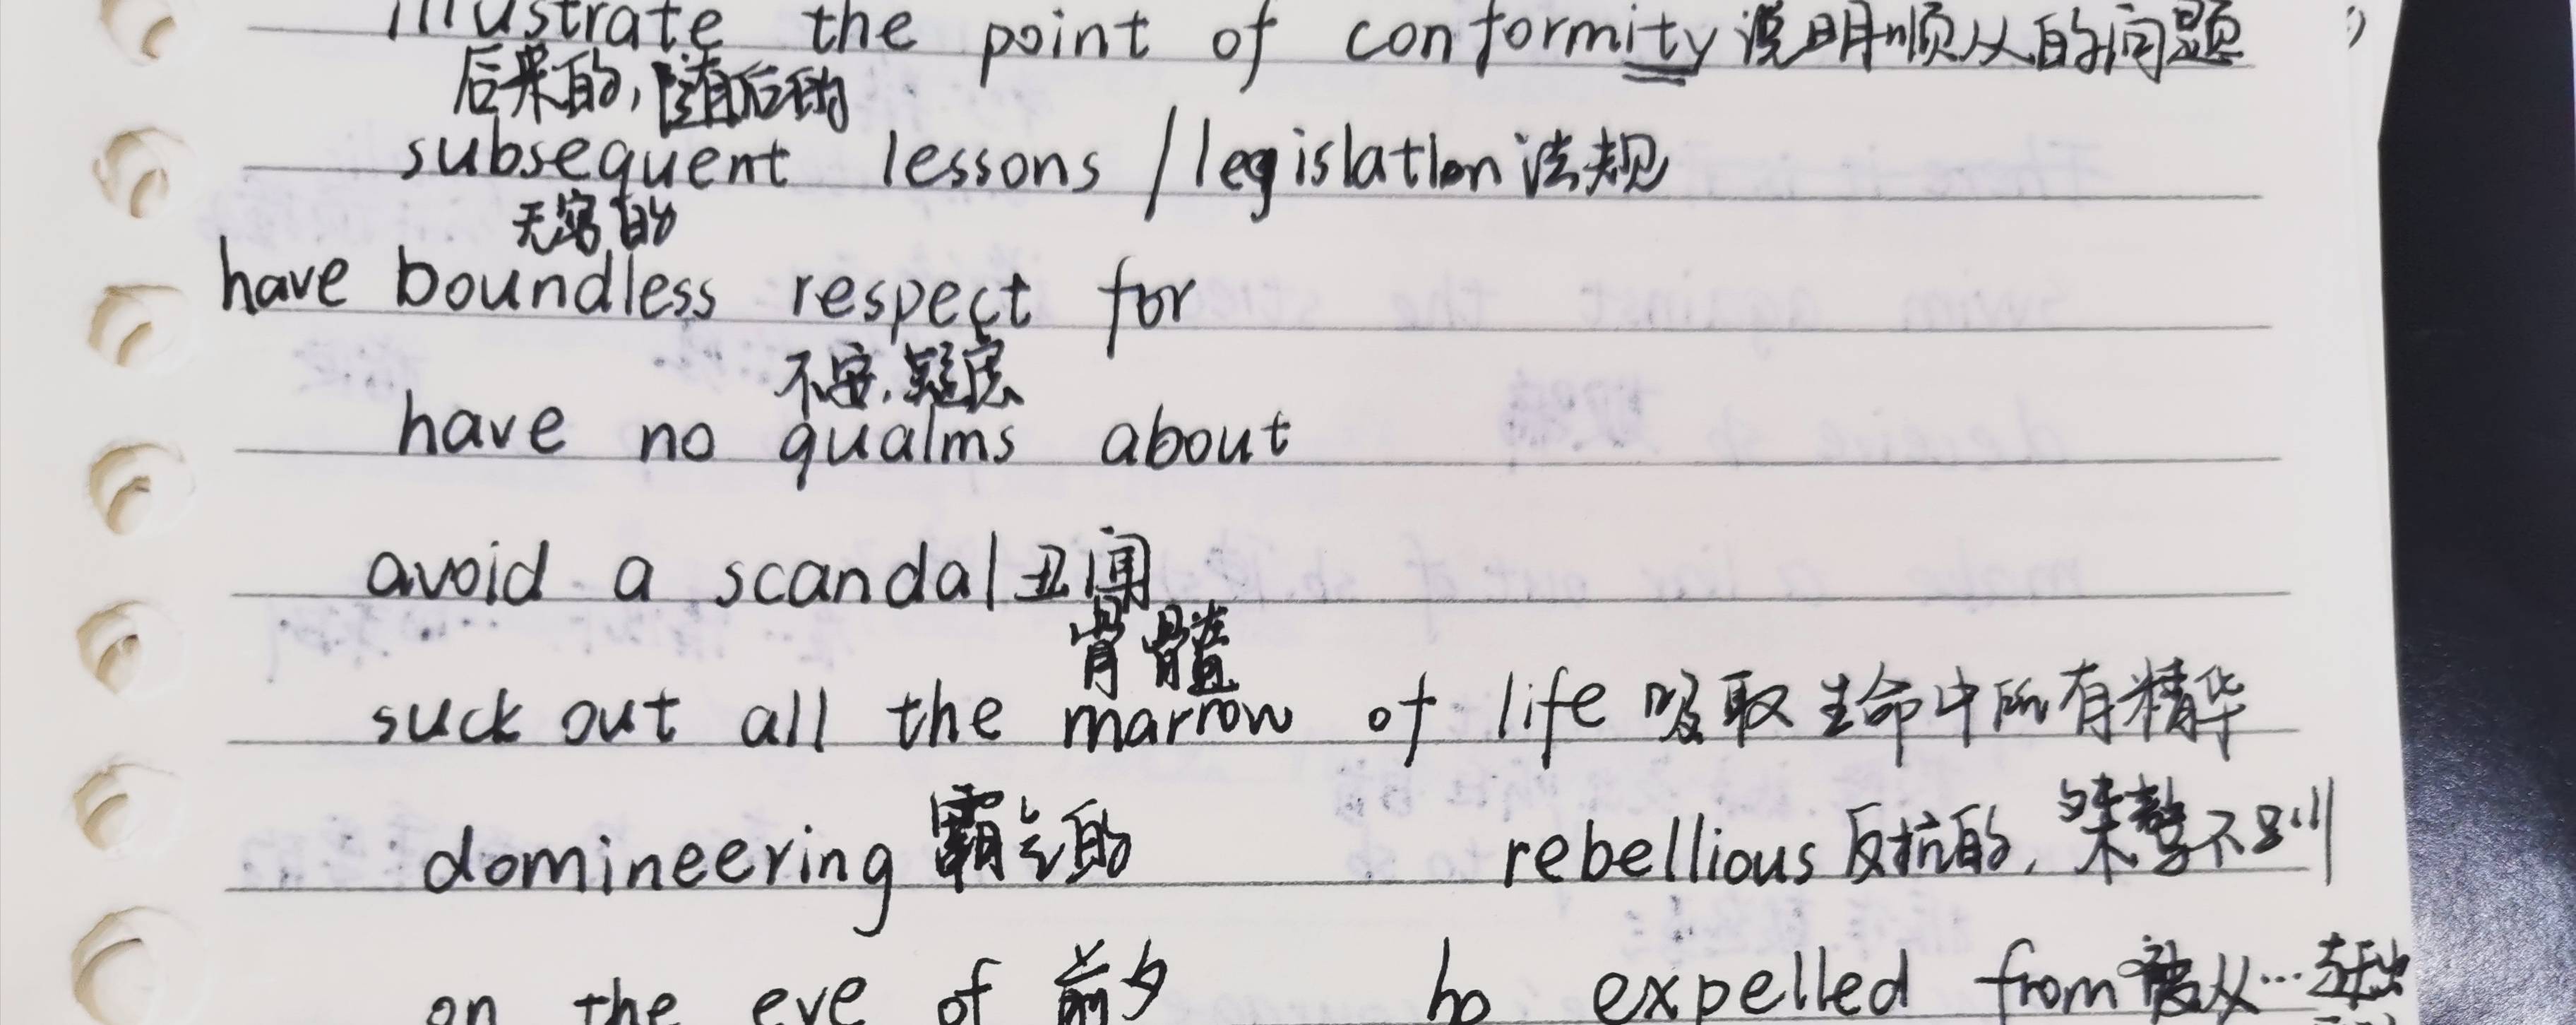 illustrate the point of conformity 说明顺从的问题
后来的,随后的
subsequent lessons / legislation 法规
无穷的
have boundless respect for
不安,疑虑
have no qualms about
avoid a scandal 丑闻
骨髓
suck out all the marrow of life 吸取生命中所有精华
domineering 霸气的 rebellious 反抗的, 桀骜不驯
on the eve of 前夕 be expelled from 被从…